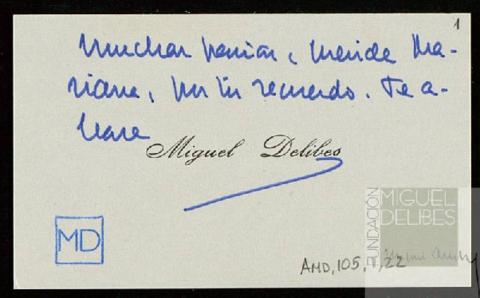 1
Muchas gracias, querida Ma-
riana, por tu recuerdo. Te a-
braza
Miguel Delibes
MD
FUNDACIÓN
MIGUEL
DELIBES
AMD, 105, 1, 22